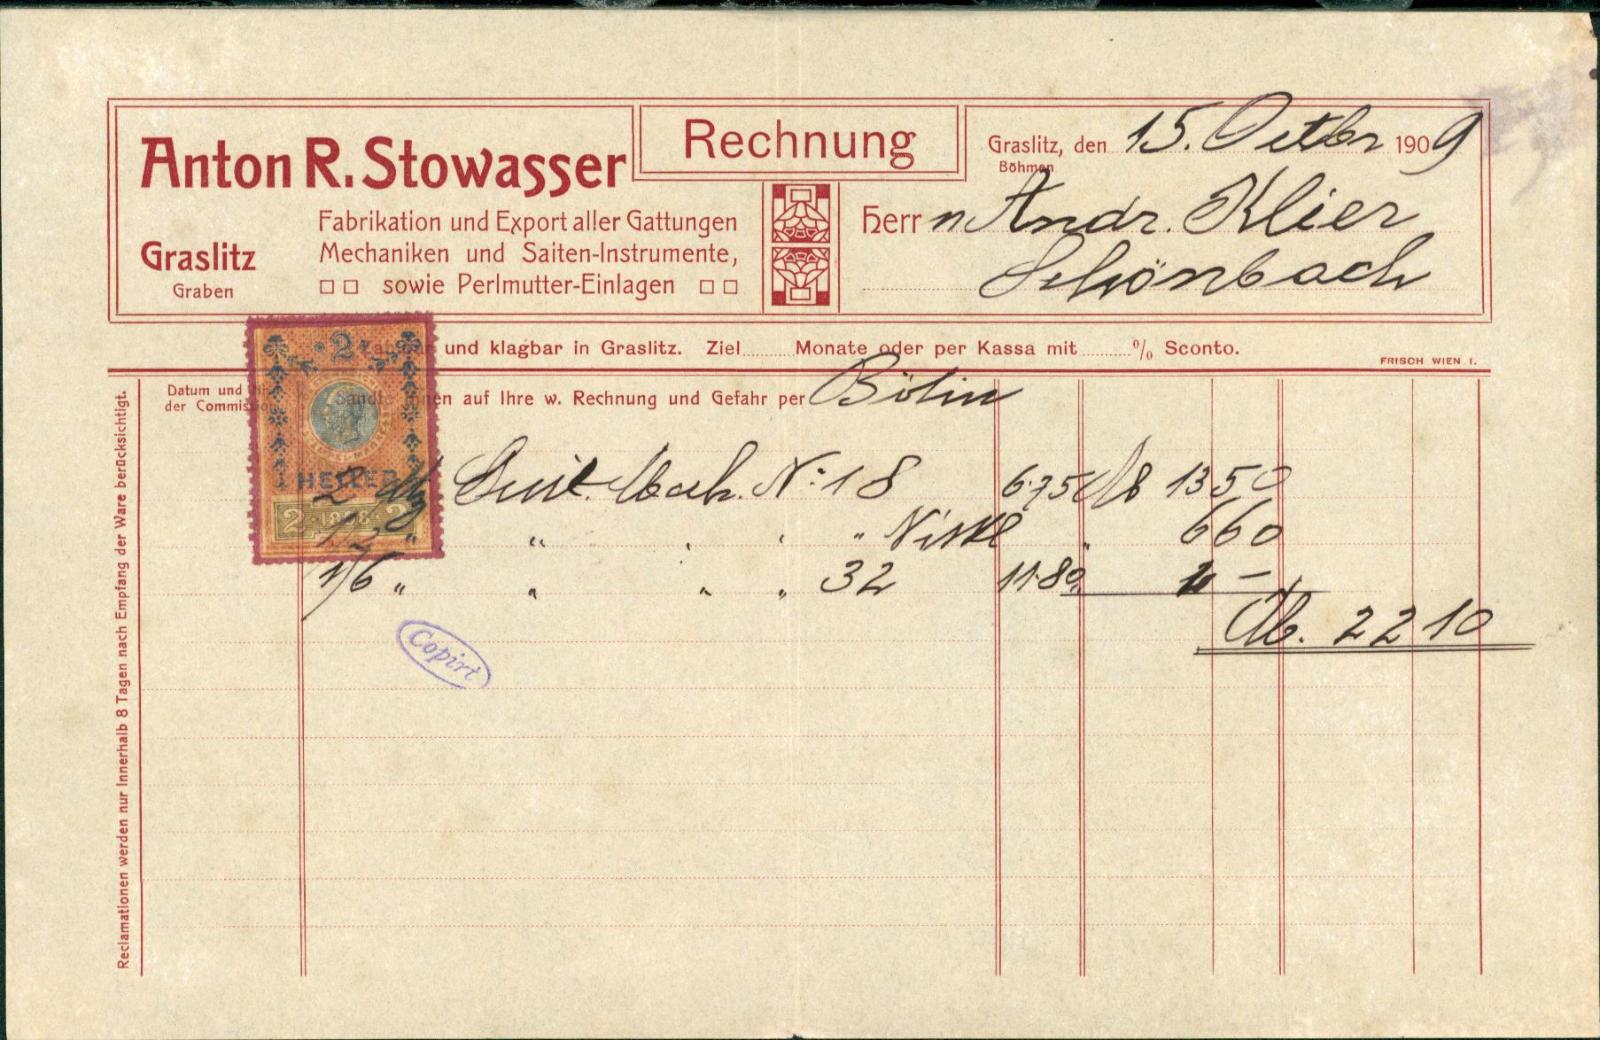 Anton R. Stowasser
Graslitz
Graben
Fabrikation und Export aller Gattungen
Mechaniken und Saiten-Instrumente,
sowie Perlmutter-Einlagen
Rechnung
Graslitz, den 15. Octbr 1909
Böhmen
Herrn Andr. Klier
Schönbach
und klagbar in Graslitz. Ziel Monate oder per Kassa mit % Sconto.
FRISCH WIEN I.
Datum und
der Commission
Sandte Ihnen auf Ihre w. Rechnung und Gefahr per
2
HELLER
2 1898 2
2 Dtz Guit. Mech. No 18 6.75 M 13 50
1/2 " " " " " Nickl " 6 60
1/6 " " " " 32 11.80 " 2 —
M. 22 10
Copirt
Reclamationen werden nur innerhalb 8 Tagen nach Empfang der Ware berücksichtigt.